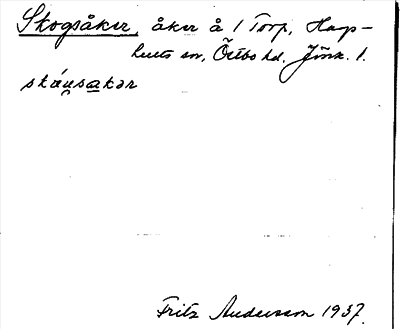 Skogsåker, åker å 1 Torp, Hap-
hults sn, Östbo hd. Jönk. l.
skáu̯sakər
Fritz Andersson 1937.